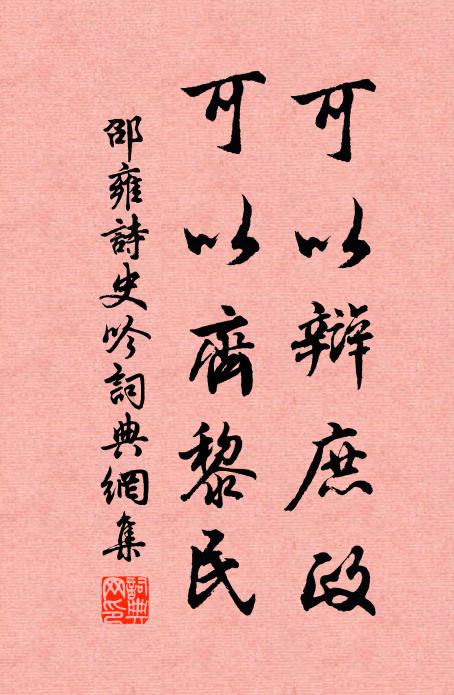 可以辯庶政
可以齊黎民
邵雍詩史吟詞典網集
詞典網印